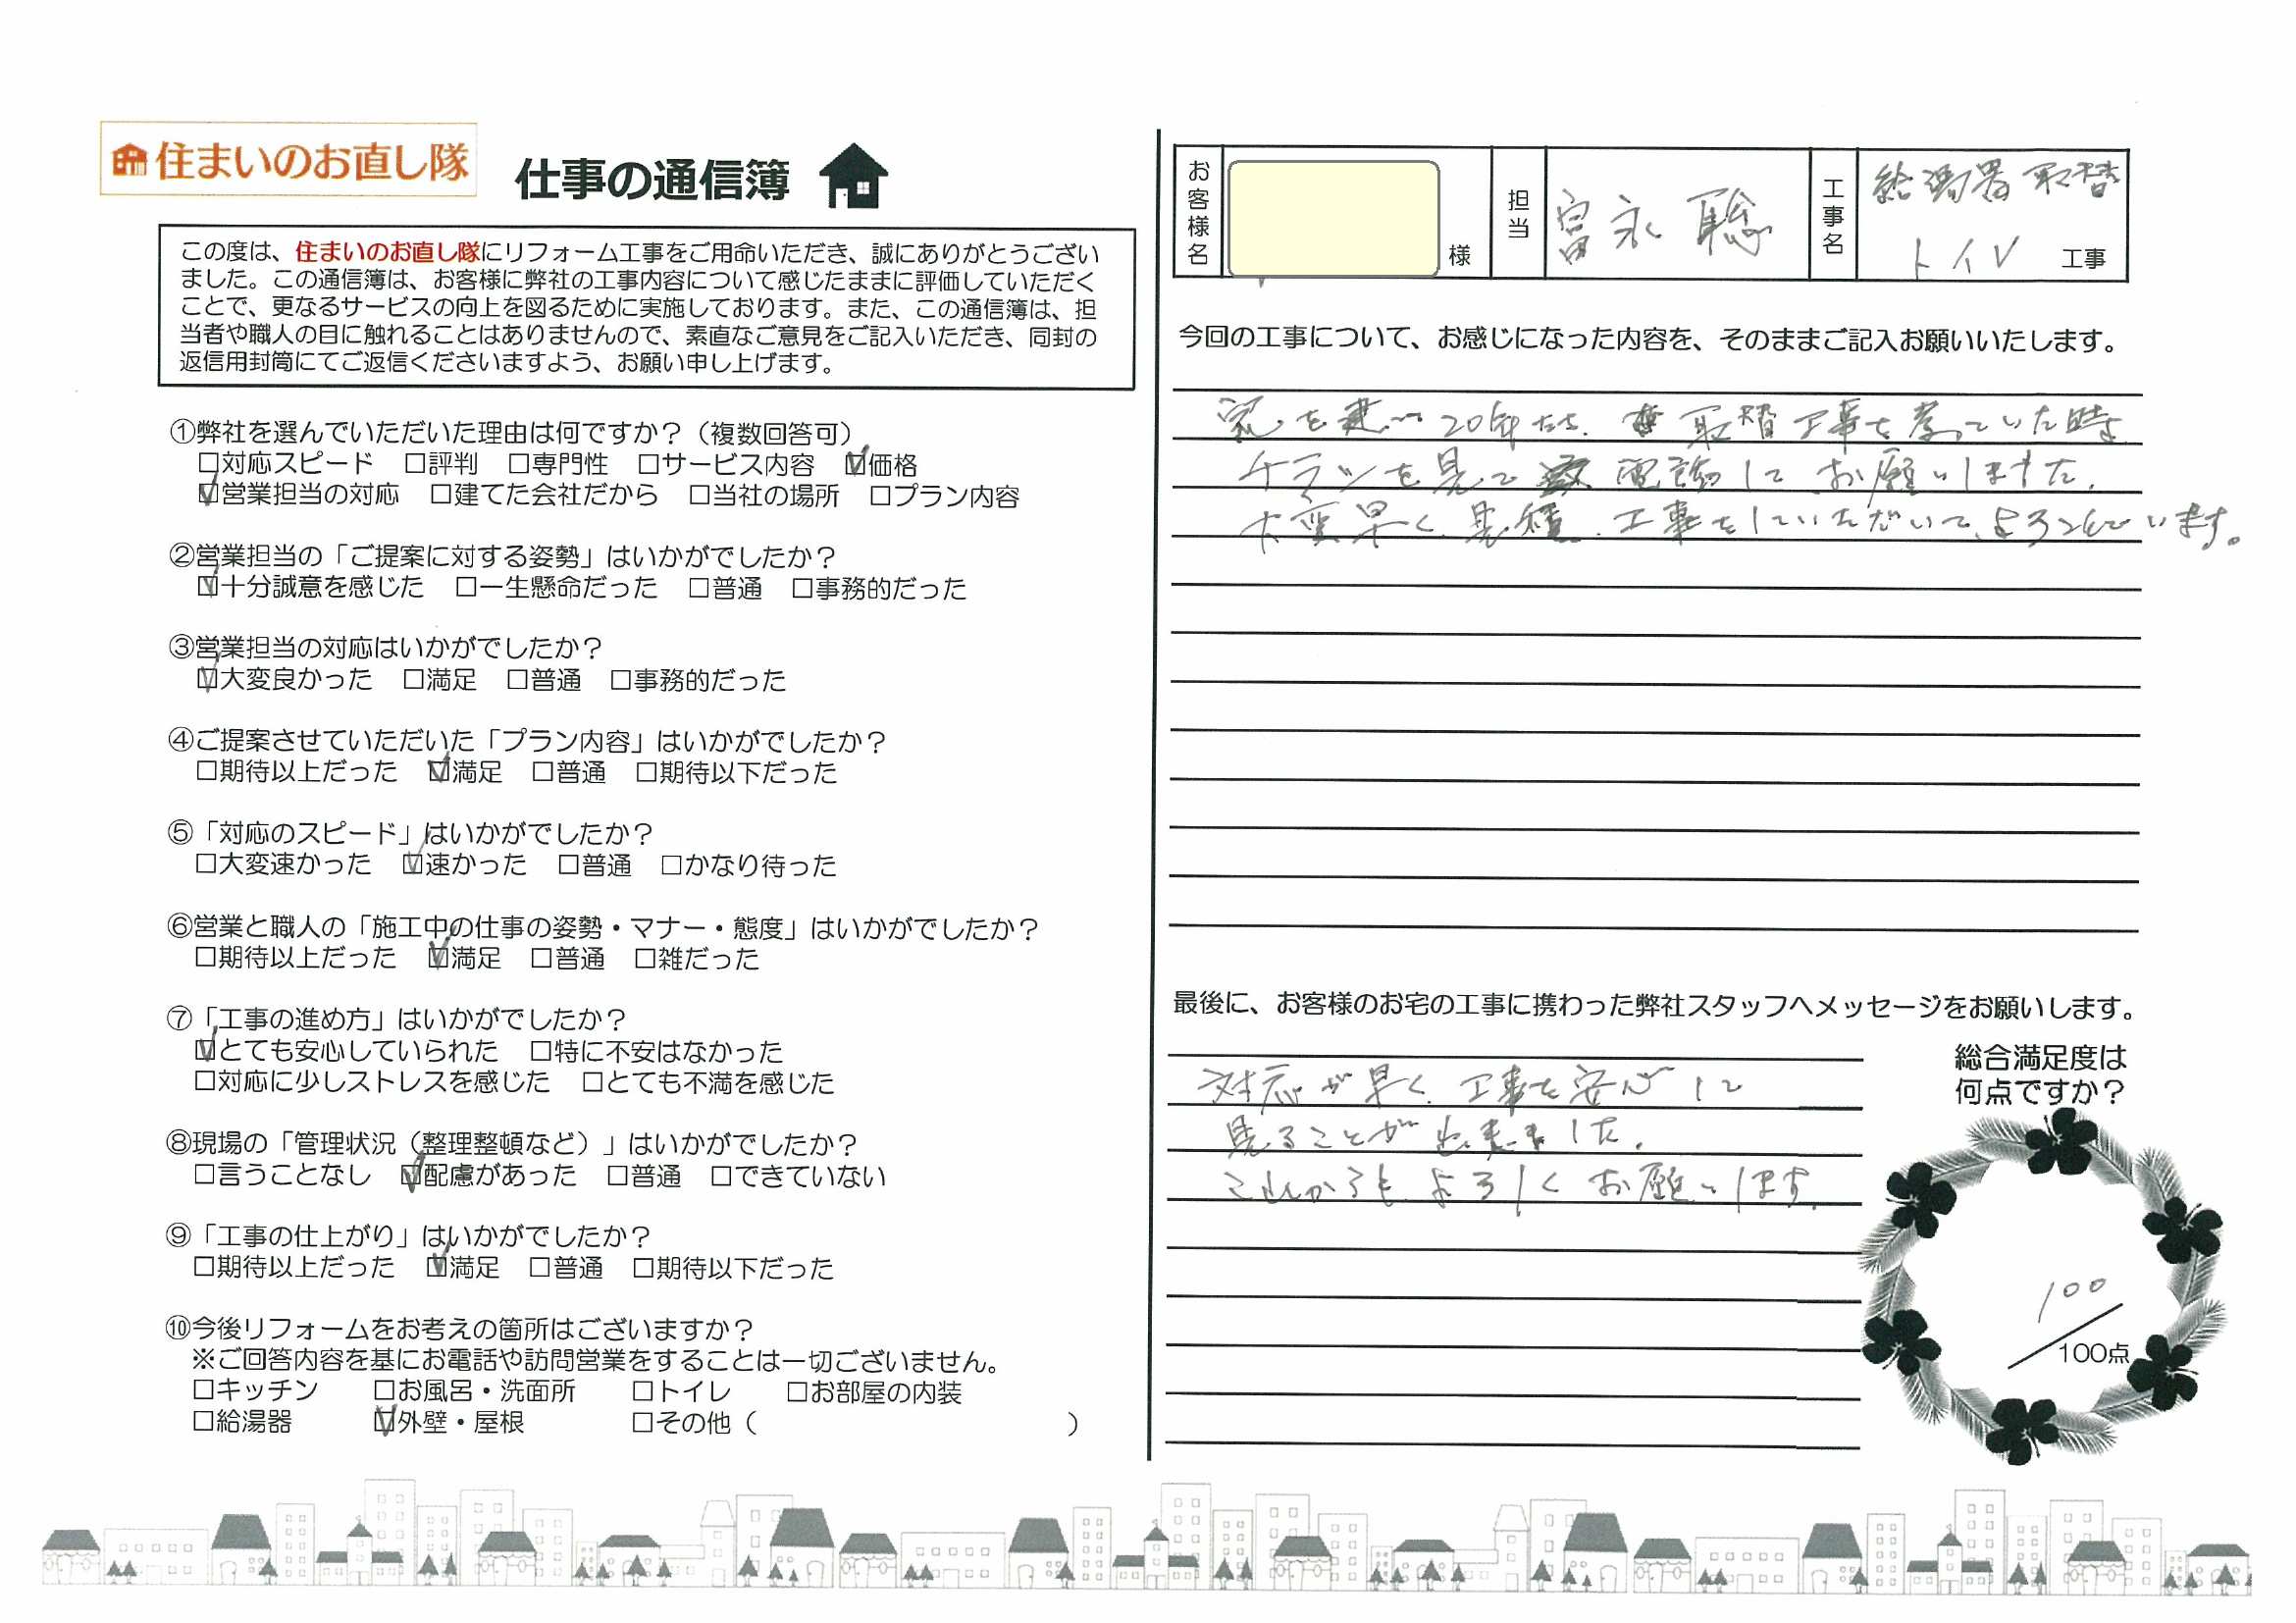 住まいのお直し隊
仕事の通信簿
この度は、住まいのお直し隊にリフォーム工事をご用命いただき、誠にありがとうござい
ました。この通信簿は、お客様に弊社の工事内容について感じたままに評価していただく
ことで、更なるサービスの向上を図るために実施しております。また、この通信簿は、担
当者や職人の目に触れることはありませんので、素直なご意見をご記入いただき、同封の
返信用封筒にてご返信くださいますよう、お願い申し上げます。
①弊社を選んでいただいた理由は何ですか？（複数回答可）
□対応スピード □評判 □専門性 □サービス内容 ☑価格
☑営業担当の対応 □建てた会社だから □当社の場所 □プラン内容
②営業担当の「ご提案に対する姿勢」はいかがでしたか？
☑十分誠意を感じた □一生懸命だった □普通 □事務的だった
③営業担当の対応はいかがでしたか？
☑大変良かった □満足 □普通 □事務的だった
④ご提案させていただいた「プラン内容」はいかがでしたか？
□期待以上だった ☑満足 □普通 □期待以下だった
⑤「対応のスピード」はいかがでしたか？
□大変速かった ☑速かった □普通 □かなり待った
⑥営業と職人の「施工中の仕事の姿勢・マナー・態度」はいかがでしたか？
□期待以上だった ☑満足 □普通 □雑だった
⑦「工事の進め方」はいかがでしたか？
☑とても安心していられた □特に不安はなかった
□対応に少しストレスを感じた □とても不満を感じた
⑧現場の「管理状況（整理整頓など）」はいかがでしたか？
□言うことなし ☑配慮があった □普通 □できていない
⑨「工事の仕上がり」はいかがでしたか？
□期待以上だった ☑満足 □普通 □期待以下だった
⑩今後リフォームをお考えの箇所はございますか？
※ご回答内容を基にお電話や訪問営業をすることは一切ございません。
□キッチン □お風呂・洗面所 □トイレ □お部屋の内装
□給湯器 ☑外壁・屋根 □その他（ ）
お客様名 様 担当 富永 聡 工事名 給湯器取替
トイレ 工事
今回の工事について、お感じになった内容を、そのままご記入お願いいたします。
家を建 20年たち、取替工事を考っていた時
チラシを見て 電話してお願いしました。
大変早く見積、工事をしていただいて、よろこんでいます。
最後に、お客様のお宅の工事に携わった弊社スタッフへメッセージをお願いします。
対応が早く、工事を安心して
見ることが出来ました。
これからもよろしくお願いします。
総合満足度は
何点ですか？
100
100点